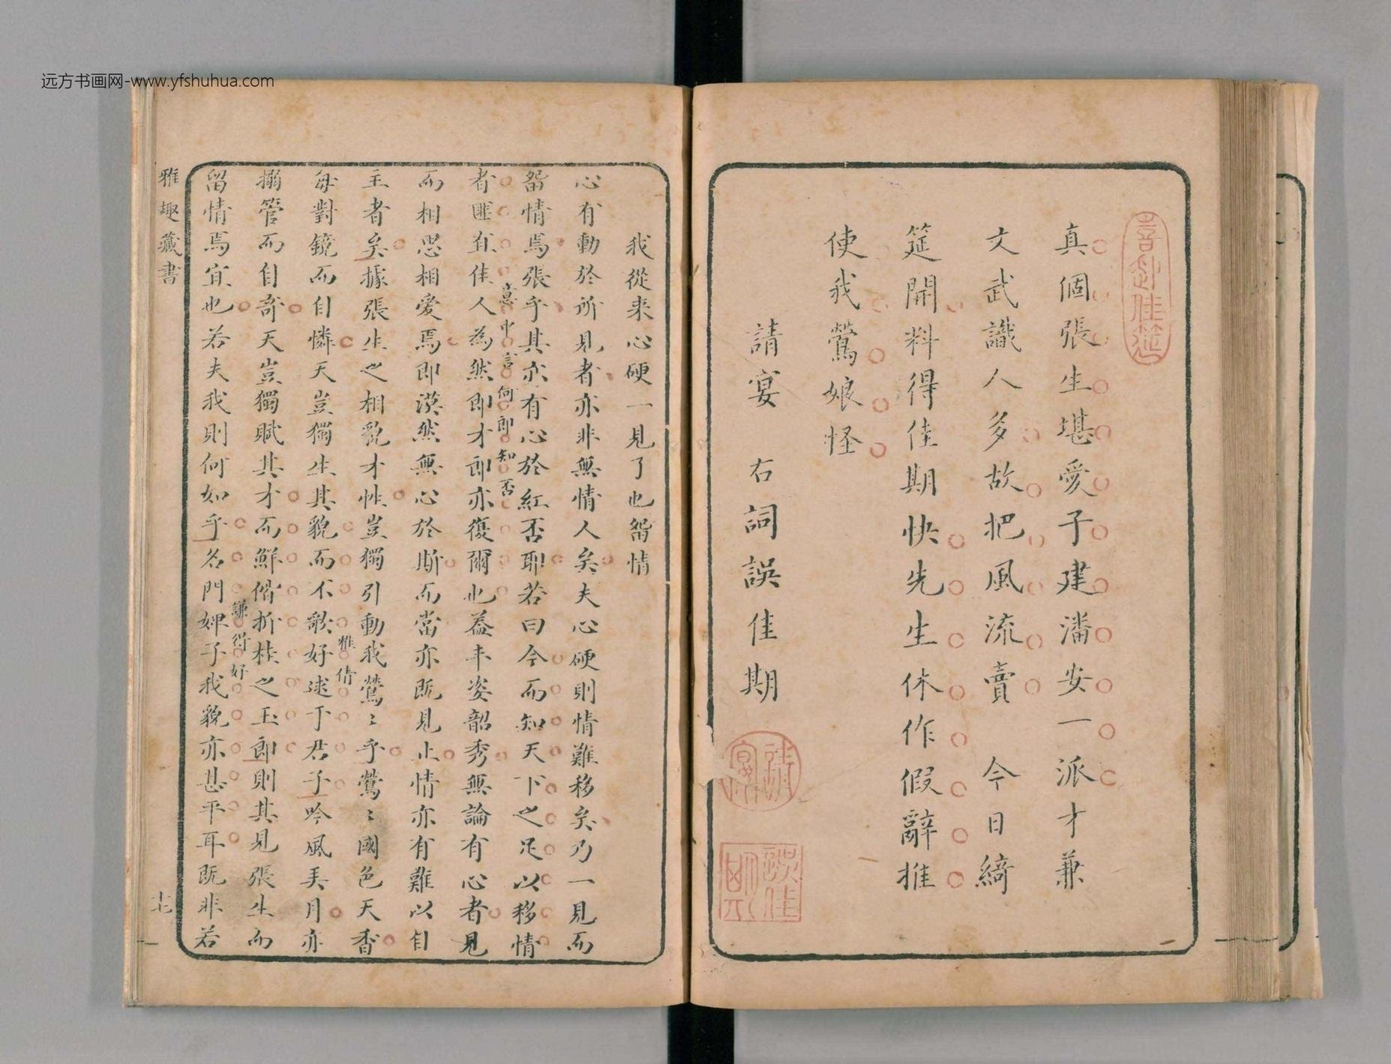 远方书画网-www.yfshuhua.com
真個張生堪愛子建潘安一派才兼
文武識人多故把風流賣 今日綺
筵開料得佳期快先生休作假辭推
使我鶯娘怪
請宴 右詞誤佳期
請宴
誤佳期
我從来心硬一見了也留情
心有動於所見者亦非無情人矣夫心硬則情難移矣乃一見而
留情焉張乎其亦有心於紅否耶若曰今而知天下之足以移情
意中言何郎知否
者匪直佳人為然即才郎亦復爾也蓋丰姿韶秀無論有心者見
而相思相愛焉即漠然無心於斯而當亦既見止情亦有難以自
主者矣據張生之相貌才性豈獨引動我鶯〻乎鶯〻國色天香
雅倩
每對鏡而自憐天豈獨生其貌而不歌好逑于君子吟風弄月亦
搦管而自奇天豈獨賦其才而鮮偕折桂之玉郎則其見張生而
謙得好
留情焉宜也若夫我則何如乎名門婢子我貌亦甚平耳既非若
雅趣藏書
十七